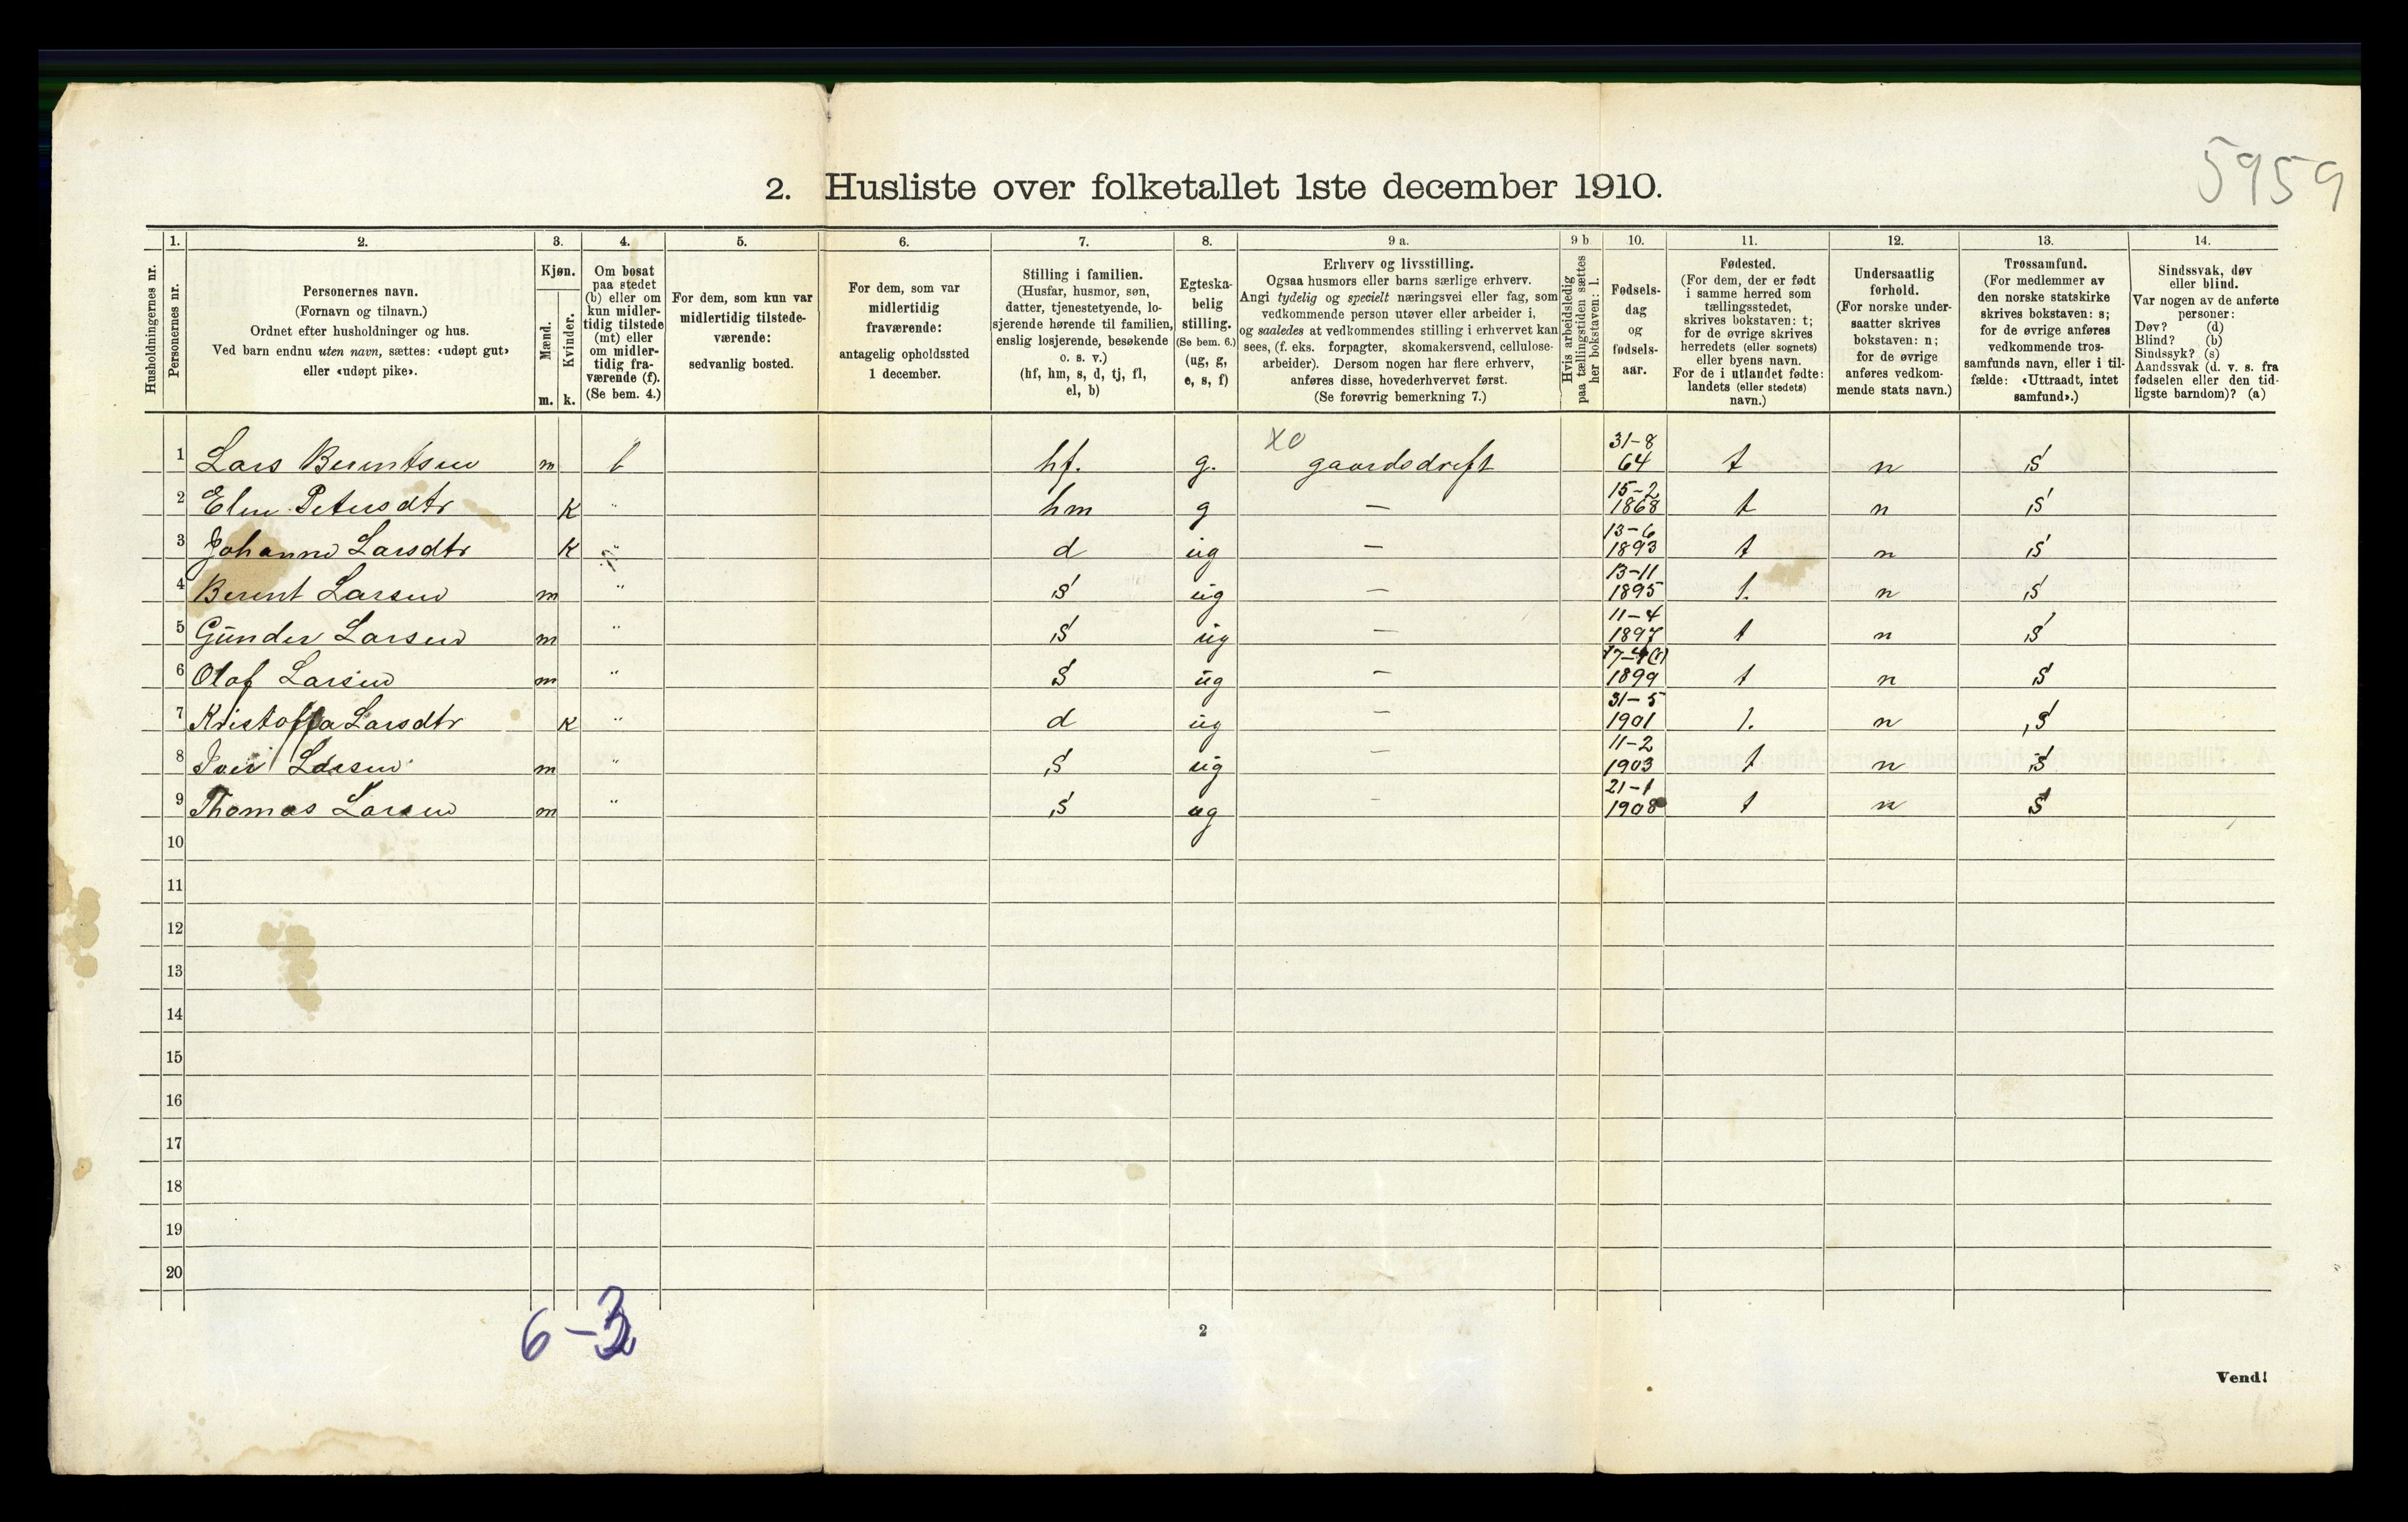 5959
2. Husliste over folketallet 1ste december 1910.
Husholdningernes nr.
1.
Personernes nr.
2.
Personernes navn.
(Fornavn og tilnavn.)
Ordnet efter husholdninger og hus.
Ved barn endnu uten navn, sættes: «udøpt gut»
eller «udøpt pike».
3.
Kjøn.
Mænd.
Kvinder.
m. k.
4.
Om bosat
paa stedet
(b) eller om
kun midler-
tidig tilstede
(mt) eller
om midler-
tidig fra-
værende (f).
(Se bem. 4.)
5.
For dem, som kun var
midlertidig tilstede-
værende:
sedvanlig bosted.
6.
For dem, som var
midlertidig
fraværende:
antagelig opholdssted
1 december.
7.
Stilling i familien.
(Husfar, husmor, søn,
datter, tjenestetyende, lo-
sjerende hørende til familien,
enslig losjerende, besøkende
o. s. v.)
(hf, hm, s, d, tj, fl,
el, b)
8.
Egteska-
belig
stilling.
(Se bem. 6.)
(ug, g,
e, s, f)
9 a.
Erhverv og livsstilling.
Ogsaa husmors eller barns særlige erhverv.
Angi tydelig og specielt næringsvei eller fag, som
vedkommende person utøver eller arbeider i,
og saaledes at vedkommendes stilling i erhvervet kan
sees, (f. eks. forpagter, skomakersvend, cellulose-
arbeider). Dersom nogen har flere erhverv,
anføres disse, hovederhvervet først.
(Se forøvrig bemerkning 7.)
9 b
Hvis arbeidsledig
paa tællingstiden sættes
her bokstaven: l.
10.
Fødsels-
dag
og
fødsels-
aar.
11.
Fødested.
(For dem, der er født
i samme herred som
tællingsstedet,
skrives bokstaven: t;
for de øvrige skrives
herredets (eller sognets)
eller byens navn.
For de i utlandet fødte:
landets (eller stedets)
navn.)
12.
Undersaatlig
forhold.
(For norske under-
saatter skrives
bokstaven: n;
for de øvrige
anføres vedkom-
mende stats navn.)
13.
Trossamfund.
(For medlemmer av
den norske statskirke
skrives bokstaven: s;
for de øvrige anføres
vedkommende tros-
samfunds navn, eller i til-
fælde: «Uttraadt, intet
samfund».)
14.
Sindssvak, døv
eller blind.
Var nogen av de anførte
personer:
Døv? (d)
Blind? (b)
Sindssyk? (s)
Aandssvak (d. v. s. fra
fødselen eller den tid-
ligste barndom)? (a)
1 Lars Berntsen m b hf. g. xo gaardsdrift 31-8 64 t n s
2 Elen Petersdtr k " hm g — 15-2 1868 t n s
3 Johanne Larsdtr k " d ug — 13-6 1893 t n s
4 Berent Larsen m " s ug — 13-11 1895 t. n s
5 Gunder Larsen m " s ug — 11-4 1897 t n s
6 Olaf Larsen m " s ug — 1899 t n s
7 Kristoffa Larsdtr k " d ug — 31-5 1901 t. n s
8 Iver Larsen m " s ug — 11-2 1903 t n s
9 Thomas Larsen m " s ug — 21-1 1908 t n s
10
11
12
13
14
15
16
17
18
19
20
6-3
2
Vend!